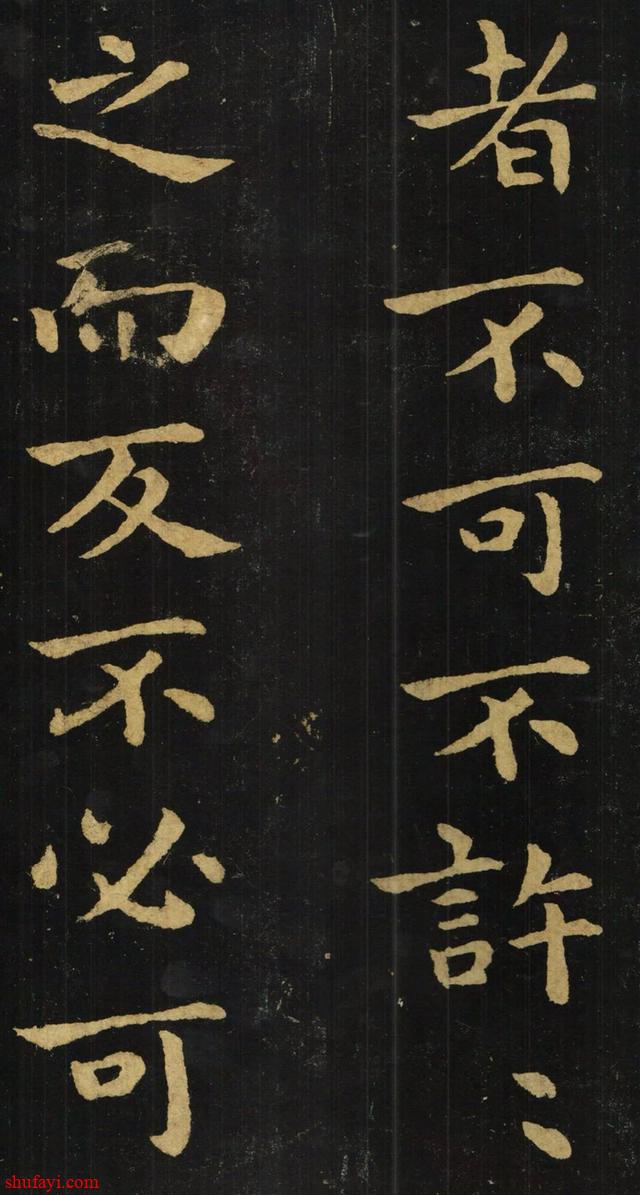 者不可不許〻
之而反不必可
shufayi.com